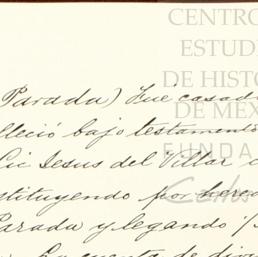 CENTRO
ESTUDI
DE HISTO
DE MÉX
FUNDA
Parada) Fué casad
lleció bajo testamento
Lic Jesus del Villar
stituyendo por hered
Parada y legando
La cuenta de div